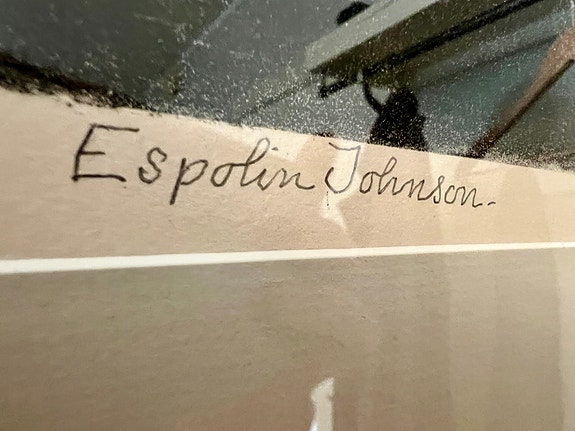 Espolin Johnson.